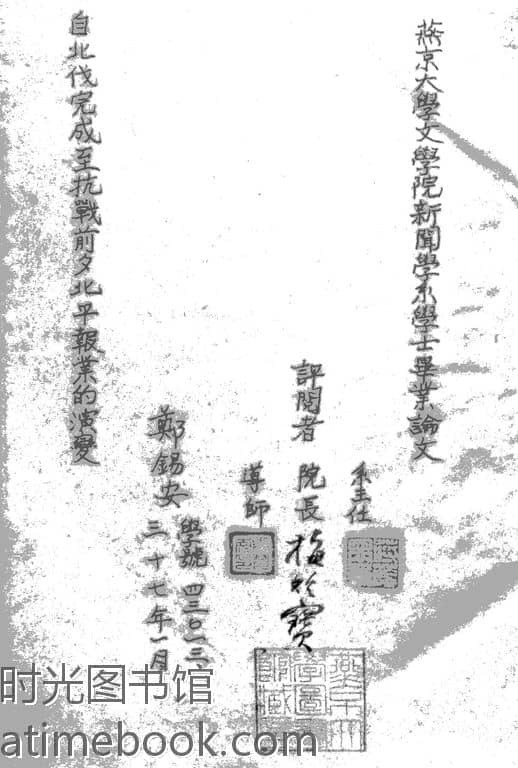 燕京大學文學院新聞學系學士畢業論文
評閱者
系主任
院長 梅貽寶
導師
鄭錫安
學號 四三〇一三
三十七年一月
自北伐完成至抗戰前夕北平報業的演變
时光图书馆
atimebook.com